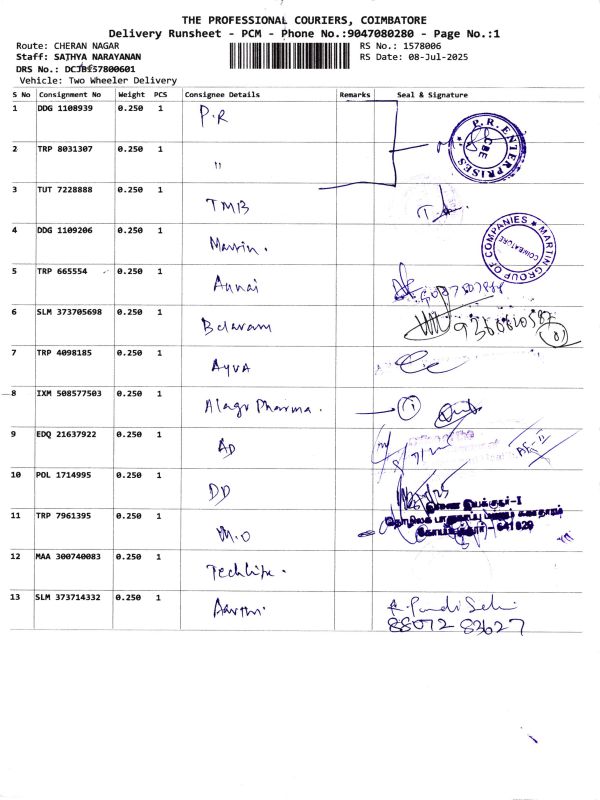 THE PROFESSIONAL COURIERS, COIMBATORE
Delivery Runsheet - PCM - Phone No.:9047080280 - Page No.:1
Route: CHERAN NAGAR
RS No.: 1578006
Staff: SATHYA NARAYANAN
RS Date: 08-Jul-2025
DRS No.:
Vehicle: Two Wheeler Delivery
S No Consignment No Weight PCS Consignee Details Remarks Seal & Signature
1 DDG 1108939 0.250 1 P.R
P.R. ENTERPRISES CBE
2 TRP 8031307 0.250 1 "
3 TUT 7228888 0.250 1 TMB
4 DDG 1109206 0.250 1 Martin.
MARTIN GROUP OF COMPANIES COIMBATORE
5 TRP 665554 0.250 1 Annai
6 SLM 373705698 0.250 1 Belaram
7 TRP 4098185 0.250 1 Ayva
8 IXM 508577503 0.250 1 Alagu Pharma. 1
9 EDQ 21637922 0.250 1 AD
10 POL 1714995 0.250 1 DD
11 TRP 7961395 0.250 1 M.O
641029
12 MAA 300740083 0.250 1
13 SLM 373714332 0.250 1
88072 83627